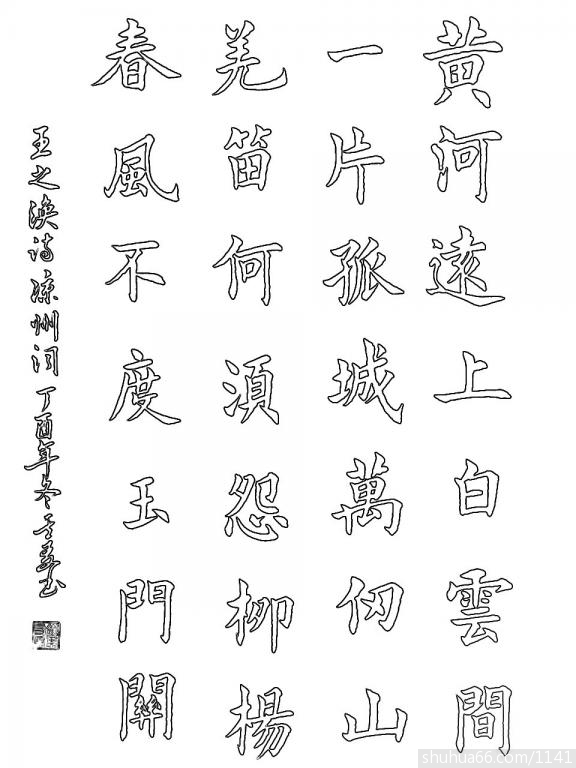 黄河遠上白雲間
一片孤城萬仞山
羌笛何須怨柳楊
春風不度玉門關
王之涣诗凉州词丁酉年冬
shuhua66.com/1141